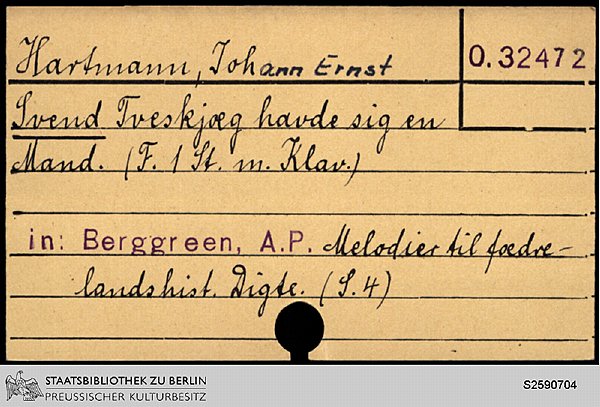 Hartmann, Johann Ernst
O. 32472
Svend Tveskjæg havde sig en
Mand. (F. 1 St. m. Klav.)
in: Berggreen, A.P. Melodier til fædre-
landshist. Digte. (S. 4)
STAATSBIBLIOTHEK ZU BERLIN
PREUSSISCHER KULTURBESITZ
S2590704